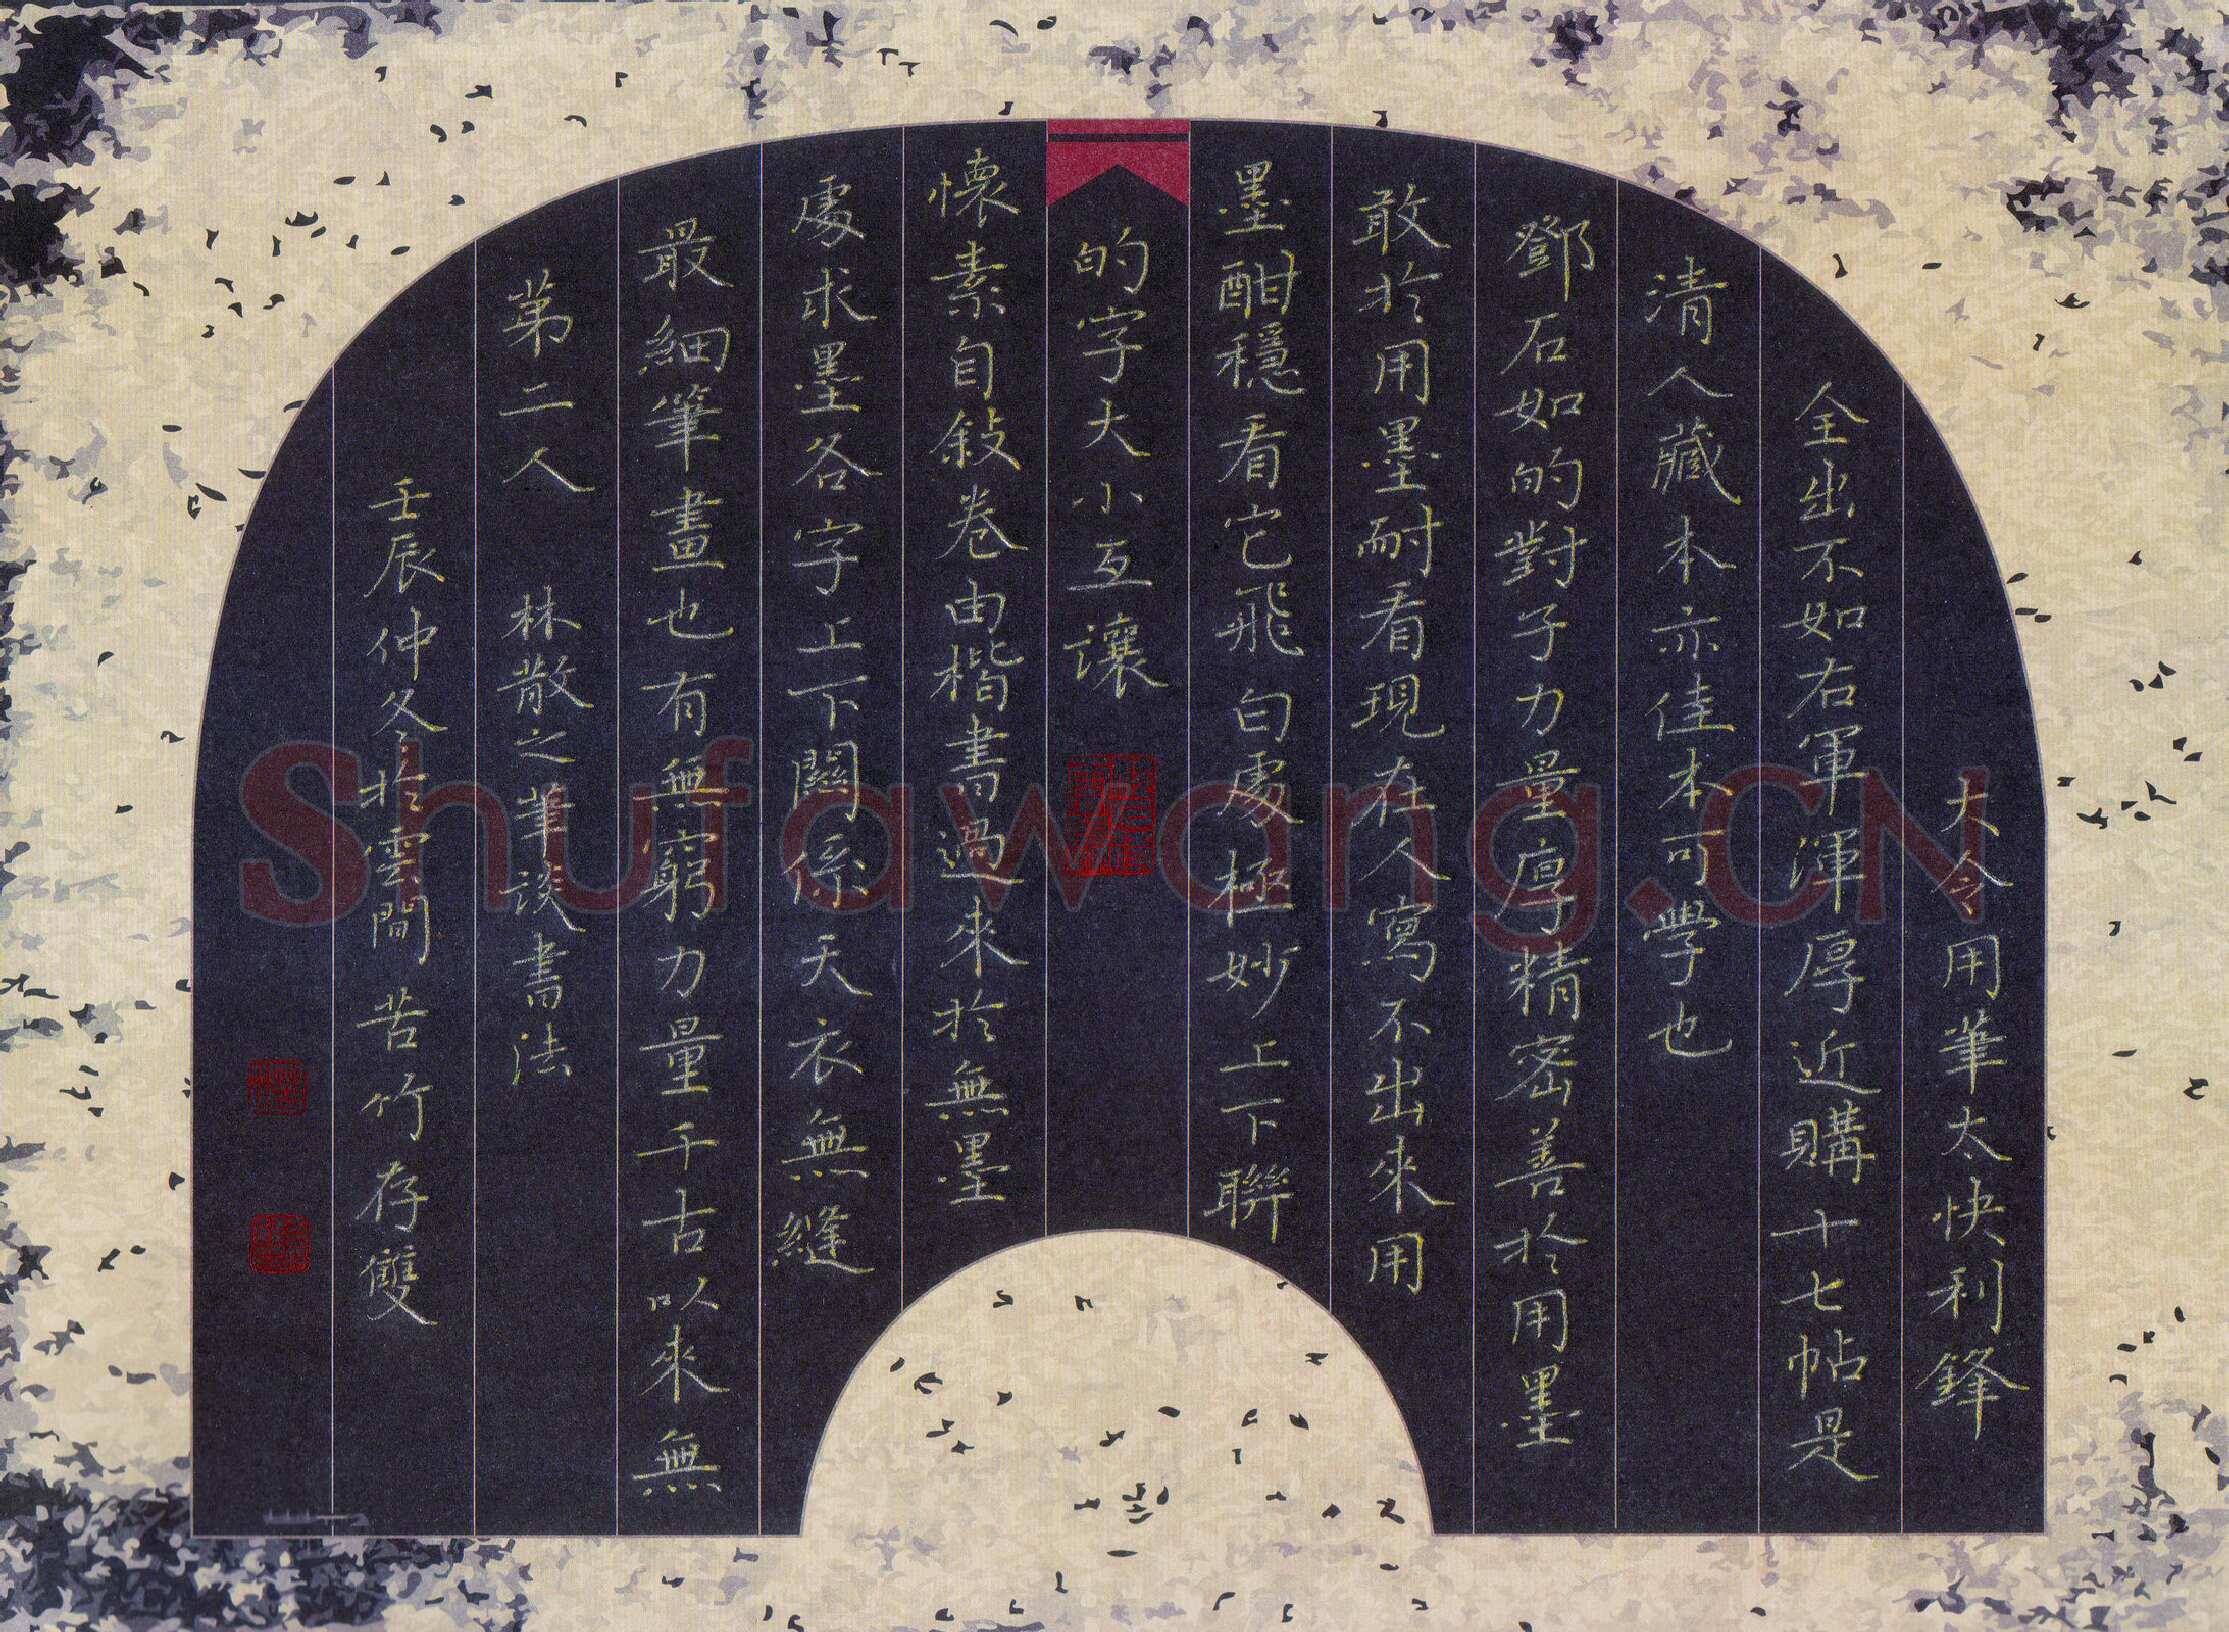 大令用筆太快利鋒
全出不如右軍渾厚近購十七帖是
清人藏本亦佳本可學也
鄧石如的對子力量厚精密善於用墨
敢於用墨耐看現在人寫不出來用
墨酣穩看它飛白處極妙上下聯
的字大小互讓
懷素自敍卷由楷書過來於無墨
處求墨各字上下關係天衣無縫
最細筆畫也有無窮力量千古以來無
第二人 林散之筆談書法
壬辰仲冬於雲間苦竹存雙
Shufawang.CN